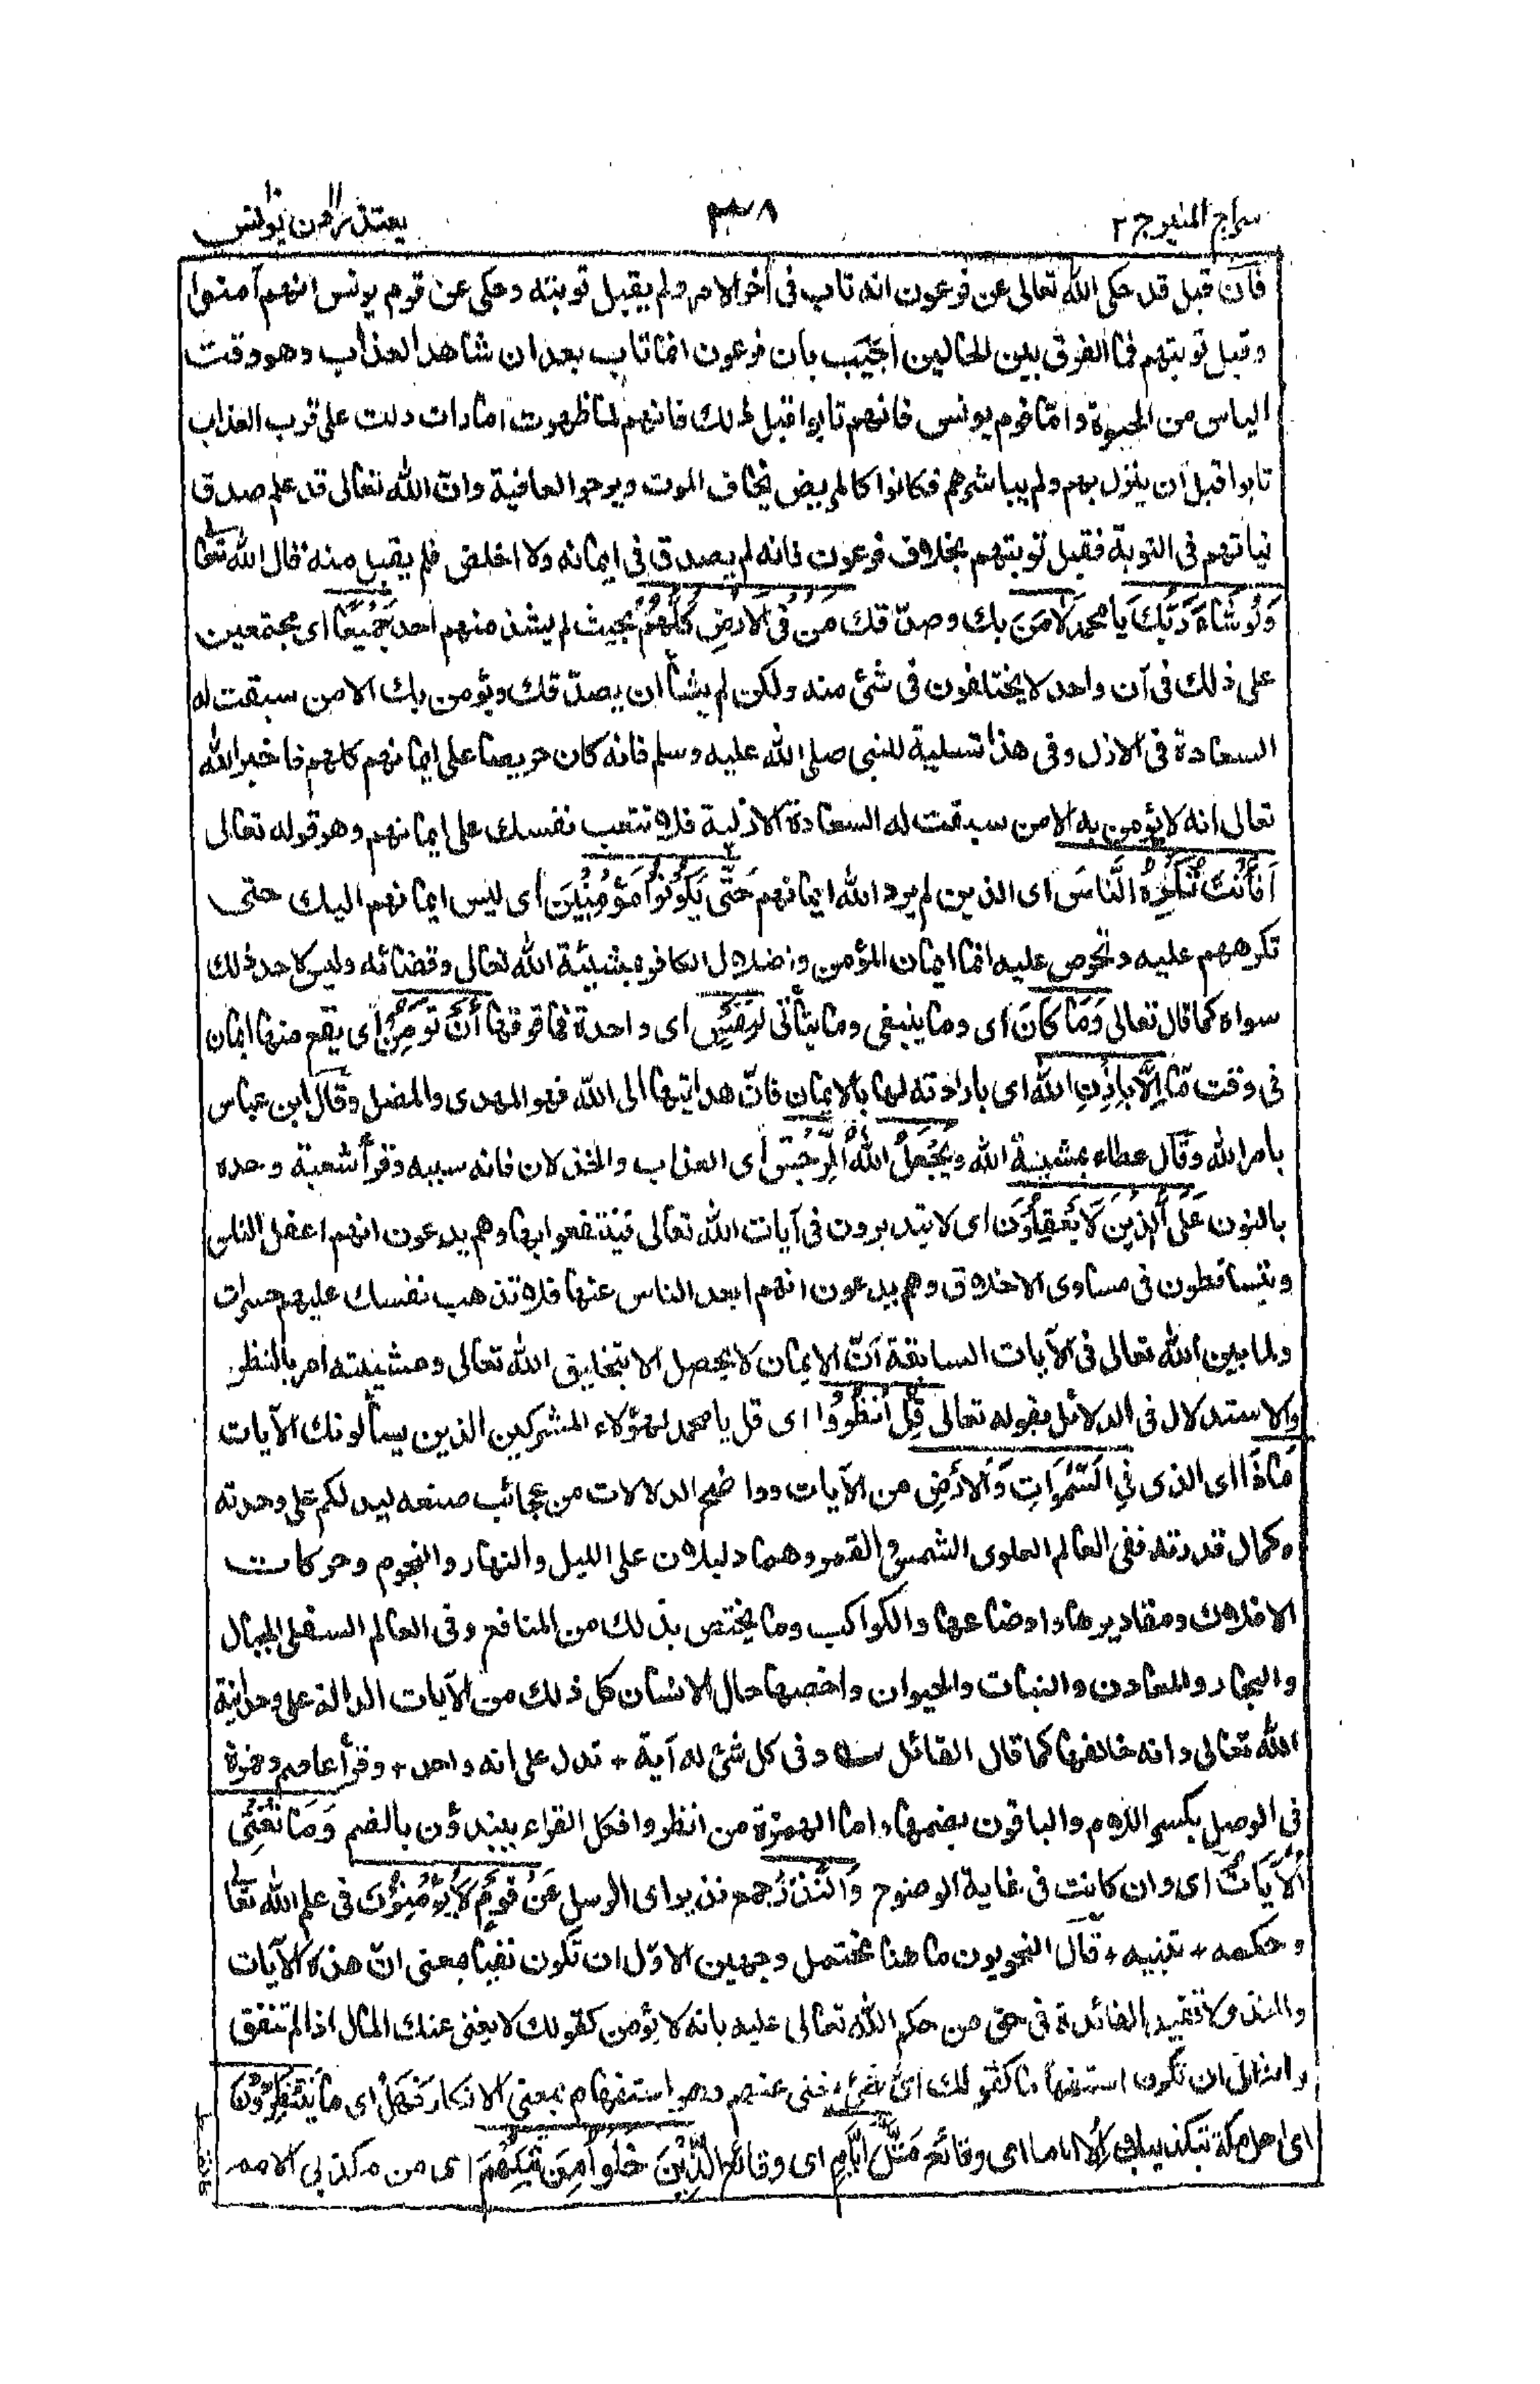 سراج المنير ج ٢
٣٨
يعتذرون يونس
فان قيل قد حكى الله تعالى عن فرعون انه تاب فى آخر الامر ولم يقبل توبته وحكى عن قوم يونس انهم آمنوا
وقبل توبتهم فما الفرق بين الحالين اجيب بان فرعون انما تاب بعد ان شاهد العذاب وهو وقت
الياس من الحيوة واما قوم يونس فانهم تابوا قبل ذلك فانهم لما ظهرت امارات دلت على قرب العذاب
تابوا قبل ان ينزل بهم ولم يباشرهم فكانوا كالمريض يخاف الموت ويرجو العافية وانّ الله تعالى قد علم صدق
نياتهم فى التوبة فقبل توبتهم بخلاف فرعون فانه لم يصدق فى ايمانه ولا اخلص فلم يقبل منه قال الله تعا
وَلَوْ شَاءَ رَبُّكَ يا محمد لَآمَنَ بك وصدّقك مَنْ فِى الْاَرْضِ كُلُّهُمْ بحيث لم يشذ منهم احد جَمِيْعًا اى مجتمعين
على ذلك فى آن واحد لا يختلفون فى شئ منه ولكن لم يشأ ان يصدّقك ويؤمن بك الا من سبقت له
السعادة فى الازل وفى هذا تسلية للنبى صلى الله عليه وسلم فانه كان حريصا على ايمانهم كلهم فاخبر الله
تعالى انه لا يؤمن به الا من سبقت له السعادة الازلية فلا تتعب نفسك على ايمانهم وهو قوله تعالى
اَفَاَنْتَ تُكْرِهُ النَّاسَ اى الذين لم يرد الله ايمانهم حَتّٰى يَكُوْنُوْا مُؤْمِنِيْنَ اى ليس ايمانهم اليك حتى
تكرههم عليه وتحرص عليه انما ايمان المؤمن واضلال الكافر بمشيئة الله تعالى وقضائه وليس لاحد ذلك
سواه كما قال تعالى وَمَا كَانَ اى وما ينبغى وما يتأتى لِنَفْسٍ اى واحدة فما فوقها اَنْ تُؤْمِنَ اى يقع منها ايمان
فى وقت مّا اِلَّا بِاِذْنِ اللهِ اى بارادته لها بالايمان فانّ هدايتها الى الله فهو المهدى والمضل وقال ابن عباس
بامر الله وقال عطاء بمشيئة الله وَيَجْعَلُ اللهُ الرِّجْسَ اى العذاب والخذلان فانه سببه وقرأ شعبة وحده
بالنون عَلَى الَّذِيْنَ لَا يَعْقِلُوْنَ اى لا يتدبرون فى آيات الله تعالى فينتفعوا بها وهم يدعون انهم اعقل الناس
ويتساقطون فى مساوى الاخلاق وهم يدعون انهم ابعد الناس عنها فلا تذهب نفسك عليهم حسرات
ولما بين الله تعالى فى الآيات السابقة انّ الايمان لا يحصل الا بتخليق الله تعالى ومشيئته امر بالنظر
والاستدلال فى الدلائل بقوله تعالى قُلِ انْظُرُوْا اى قل يا محمد لهؤلاء المشركين الذين يسألونك الآيات
مَاذَا اى الذى فِى السَّمٰوٰتِ وَالْاَرْضِ من الآيات وواضح الدلالات من عجائب صنعه ليدلكم على وحدته
وكمال قدرته ففى العالم العلوى الشمس والقمر وهما دليلان على الليل والنهار والنجوم وحركات
الافلاك ومقاديرها واوضاعها والكواكب وما يختص بذلك من المنافع وفى العالم السفلى الجبال
والبحار والمعادن والنبات والحيوان واخصها حال الانسان كل ذلك من الآيات الدالة على وحدانية
الله تعالى وانه خالقها كما قال القائل وفى كل شئ له آية + تدل على انه واحد + وقرأ عاصم وحمزة
فى الوصل بكسر اللام والباقون بضمها واما الهمزة من انظروا فكل القراء يبتدؤن بالضم وَمَا تُغْنِى
الْاٰيَاتُ اى وان كانت فى غاية الوضوح وَالنُّذُرُ جمع نذير اى الرسل عَنْ قَوْمٍ لَا يُؤْمِنُوْنَ فى علم الله تعا
وحكمه + تنبيه + قال النحويون ما هنا تحتمل وجهين الاوّل ان تكون نفيا بمعنى انّ هذه الآيات
والنذر لا تفيد الفائدة فى حق من حكم الله تعالى عليه بانه لا يؤمن كقولك لا يغنى عنك المال اذا لم تنفق
والثانى ان تكون استفهاما كقولك اىّ شئ يغنى عنهم وهو استفهام بمعنى الانكار فَهَلْ اى ما يَنْتَظِرُوْنَ
اى اهل مكة بتكذيبك اِلَّا اياما اى وقائع مِثْلَ اَيَّامِ اى وقائع الَّذِيْنَ خَلَوْا مِنْ قَبْلِهِمْ اى من مكذبى الامم